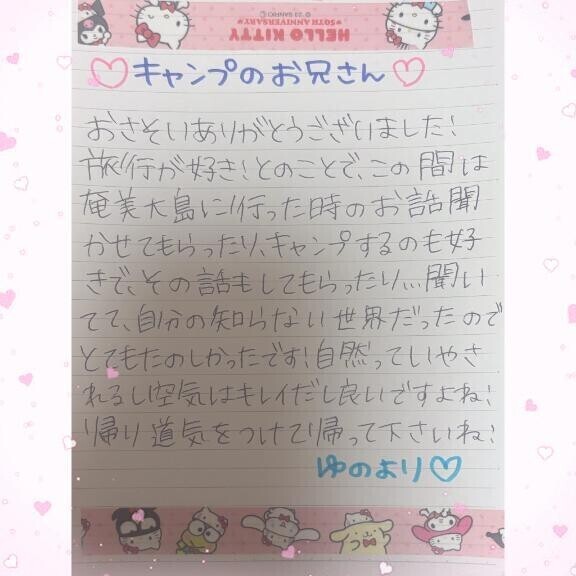 HELLO KITTY
50TH ANNIVERSARY
♡キャンプのお兄さん♡
おさそいありがとうございました!
旅行が好き!とのことで、この間は
奄美大島に行った時のお話聞
かせてもらったり、キャンプするのも好
きで、その話もしてもらったり...聞い
てて、自分の知らない世界だったので
とてもたのしかったです!自然っていやさ
れるし空気はキレイだし良いですよね!
帰り道気をつけて帰って下さいね!
ゆのより♡